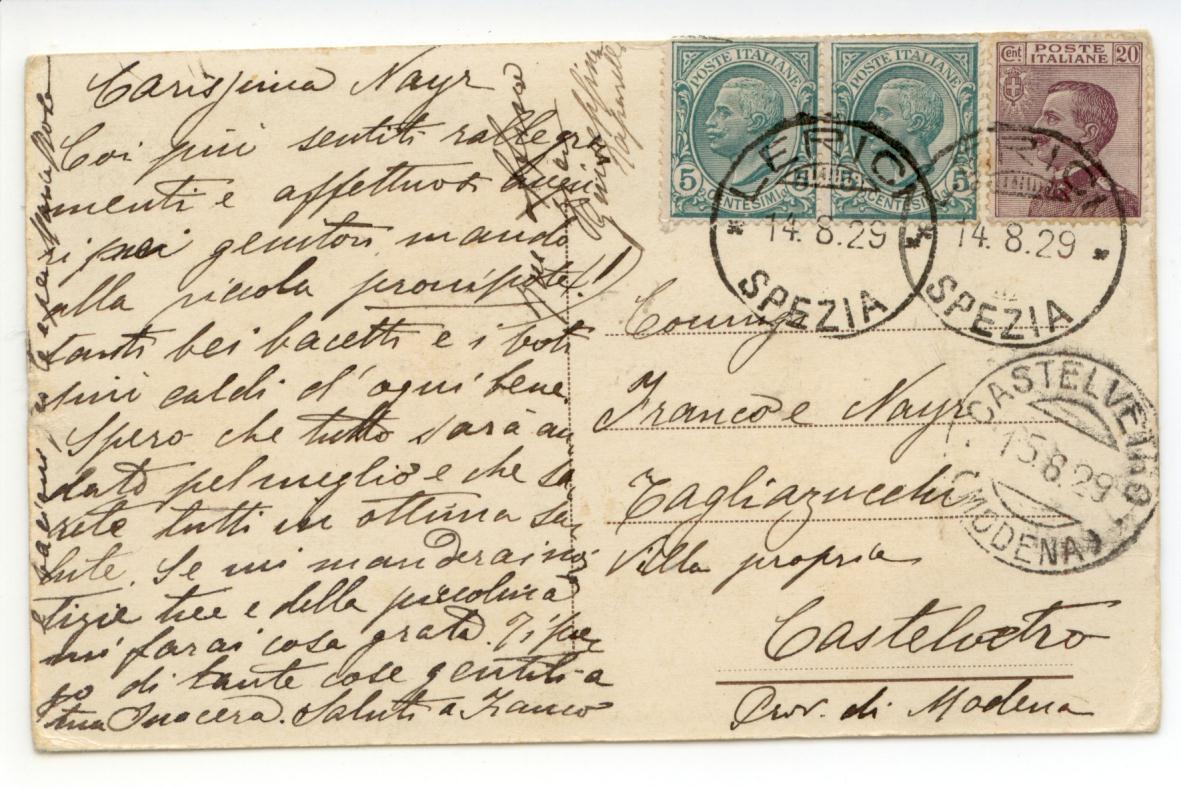 Carissima Nayr
Coi più sentiti rallegra
menti e affettuosi auguri
ri pei genitori mando
alla piccola pronipote!!
tanti bei bacetti e i voti
più caldi d'ogni bene.
Spero che tutto sarà an
dato pel meglio e che sa
rete tutti in ottima sa
lute. Se mi manderai no
tizie tue e della piccolina
mi farai cosa grata. Ti pre
go di tante cose gentili a
tua Suocera. Saluti a Franco
POSTE ITALIANE
5 CENTESIMI 5
POSTE ITALIANE
5 CENTESIMI 5
Cent POSTE ITALIANE 20
LERICI
14.8.29
SPEZIA
LERICI
14.8.29
SPEZIA
CASTELVETRO
15.8.29
(MODENA)
Franco e Nayr
Tagliazucchi
Villa propria
Castelvetro
Prov. di Modena